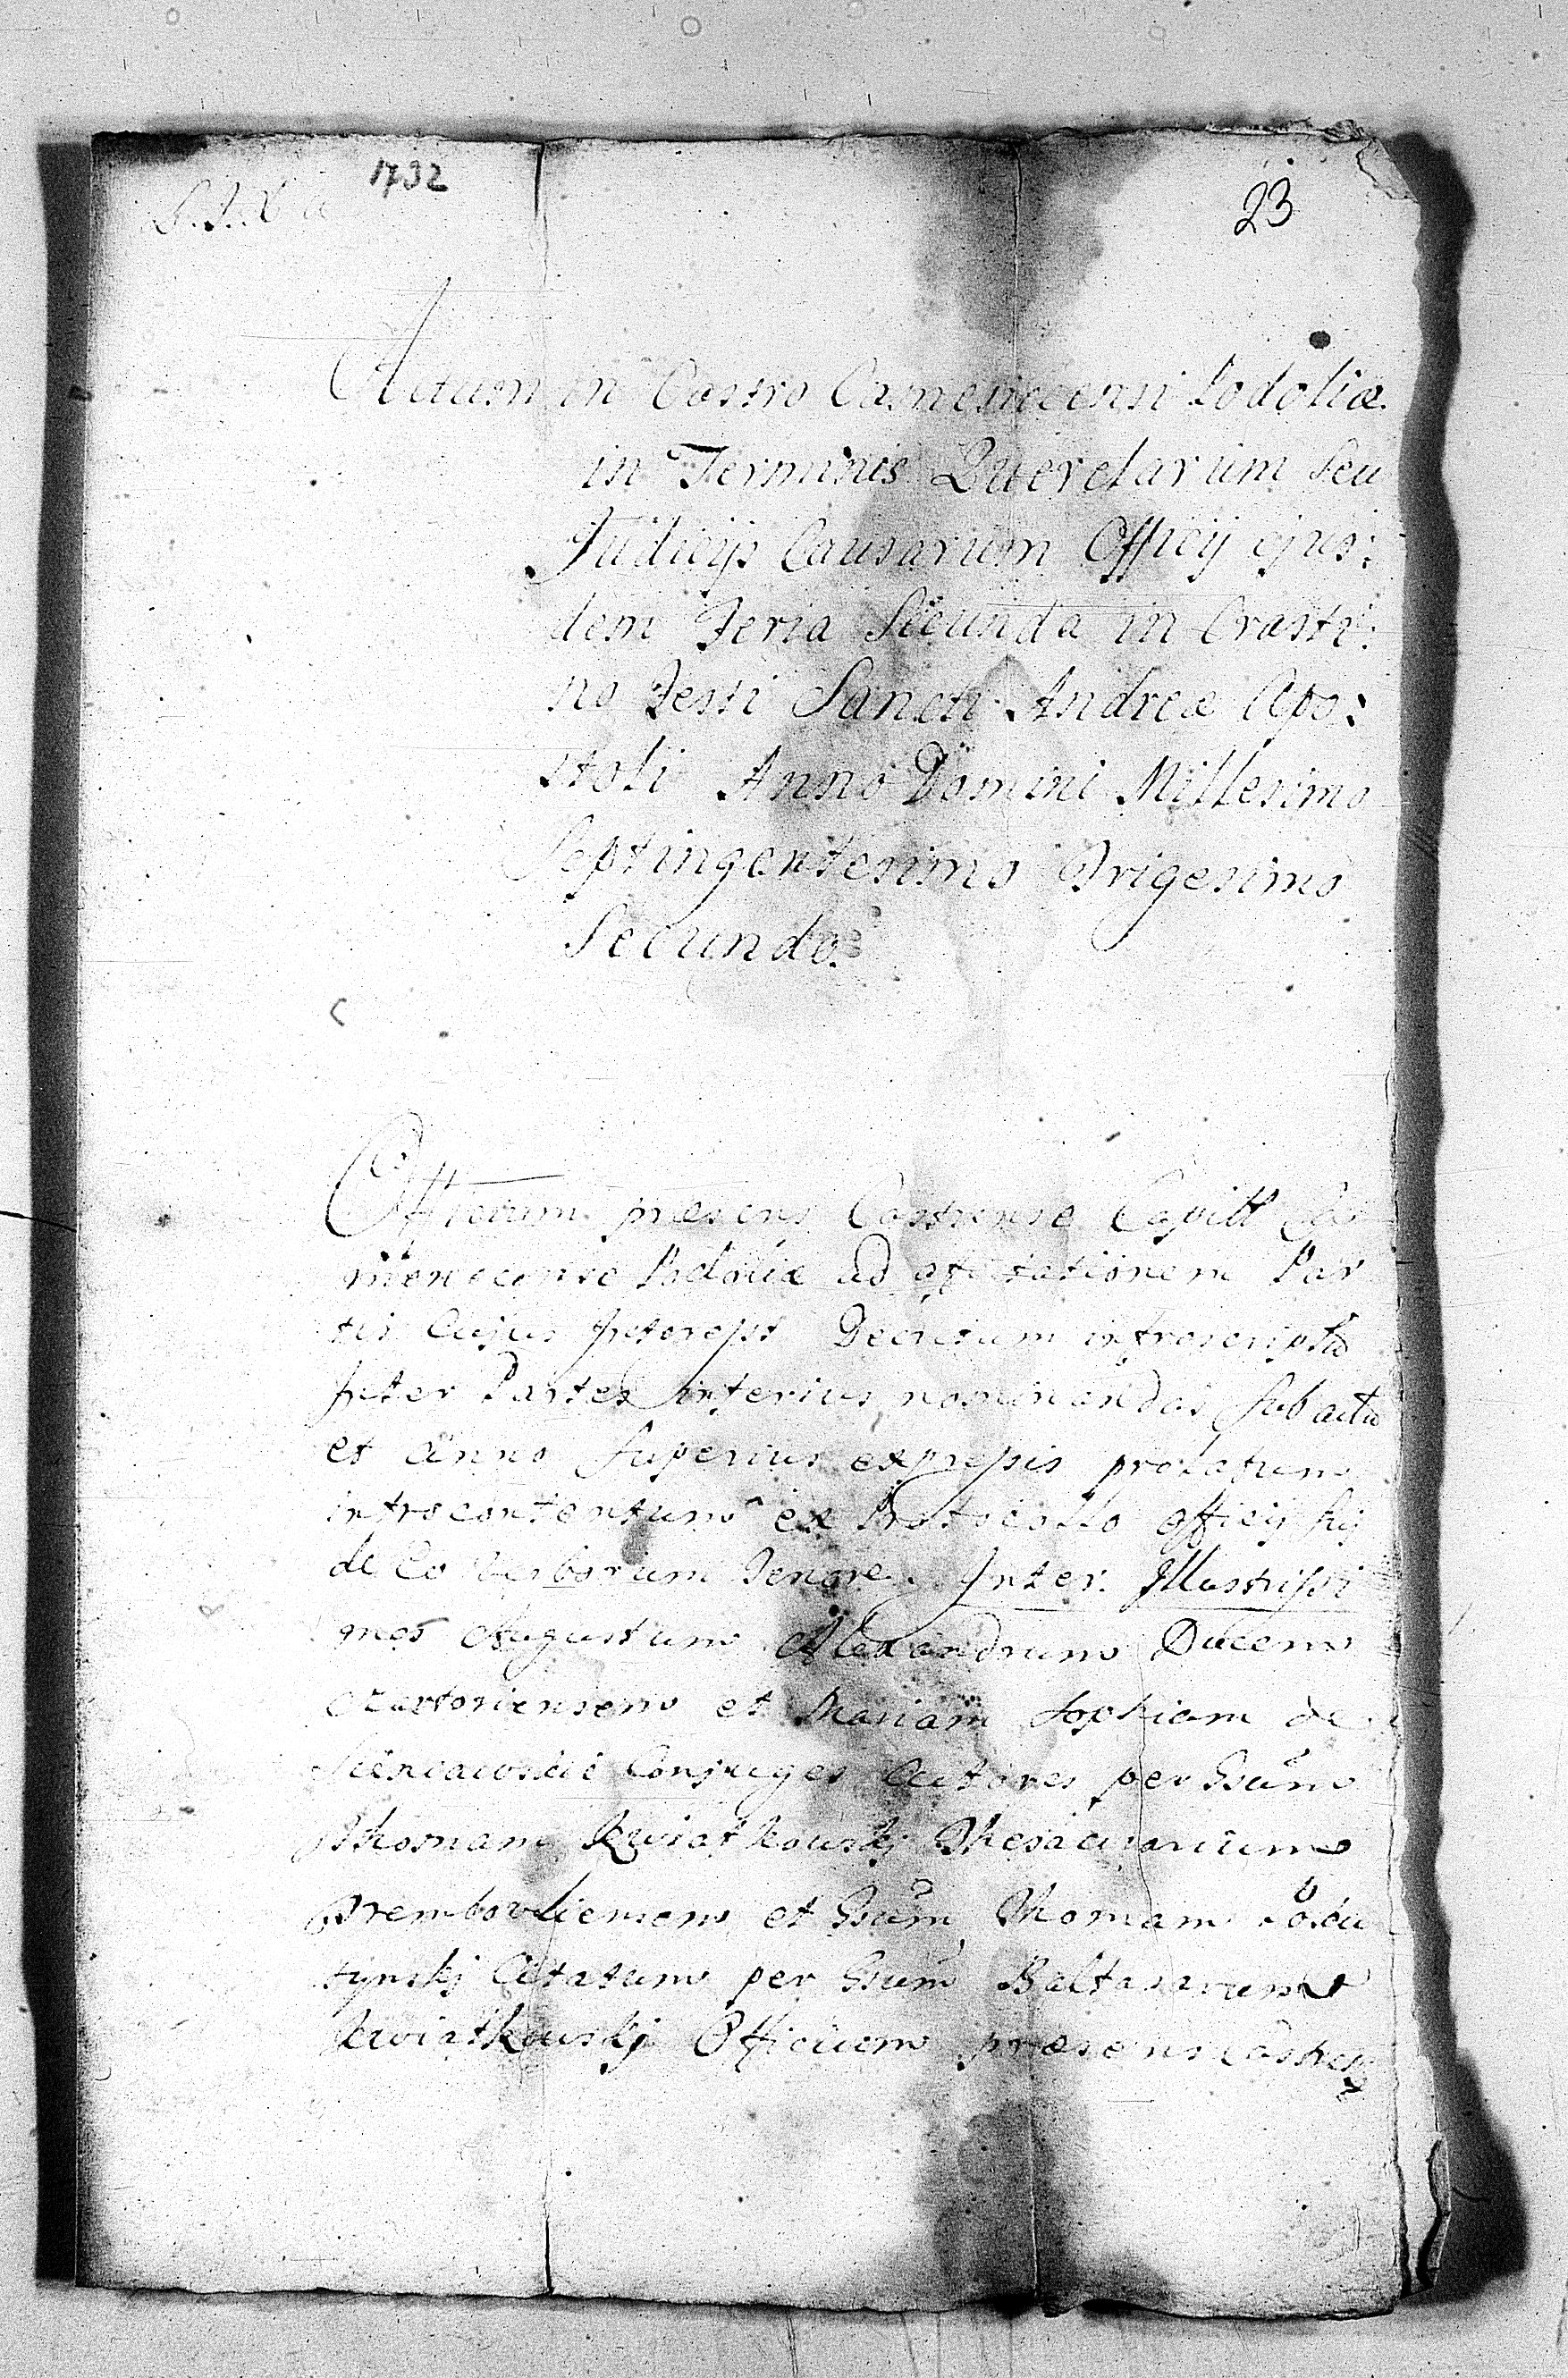 1732
23
Actum in Castro Camenecensi Podoliæ
in Terminis Querelarum Seu
Judicijs Causarum Officij ejus:
dem Feria Secunda in Crasti:
no Festi Sancti Andreæ Apo:
stoli Anno Domini Millesimo
Septingentesimo Trigesimo
Secundo.
Officium præsens Castrense Capitt Ca
menecense Podoliæ ad affectationem Par
tis Cujus Interest Decretum introscriptũ
Inter Partes inferius nominandas Sub actu
et Anno Superius expressis prolatum
introcontentum ex Protocollo officij sui
de Eo Verborum Tenore. Inter Illustrissi
mos Augustum Alexandrum Ducem
Czartoriensem et Mariam Sophiam de
Sieniawskie Conjuges Actores per Gsum
Thomam Kwiatkowskj Thesaurarium
Trembovliensem et Gsum Thomam
tynskj Citatum per Gsum Baltasarum
Kwiatkowskj Officium præsens Castren